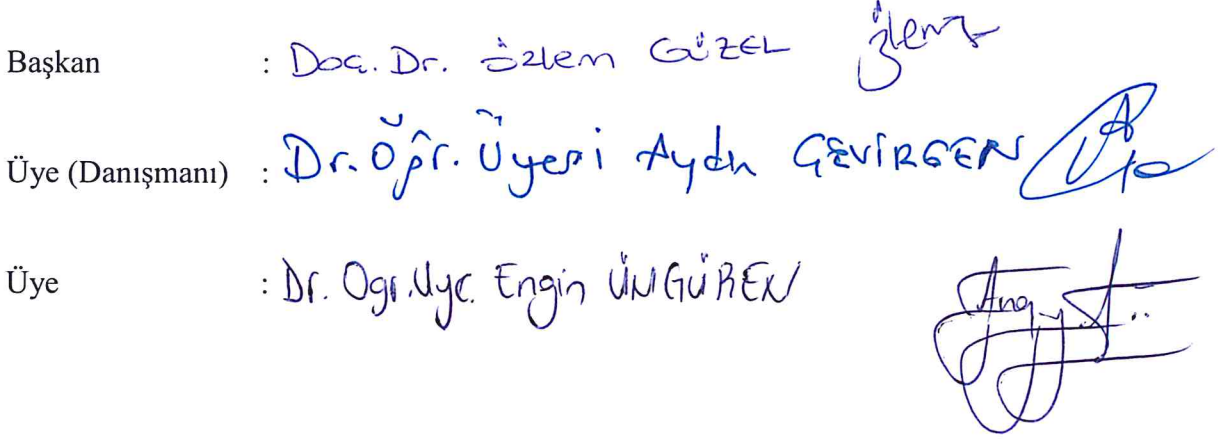 Başkan : Doç. Dr. Özlem GÜZEL
Üye (Danışmanı) : Dr. Öğr. Üyesi Aydın ÇEVİRGEN
Üye : Dr. Ogr. Uye. Engin ÜNGÜREN